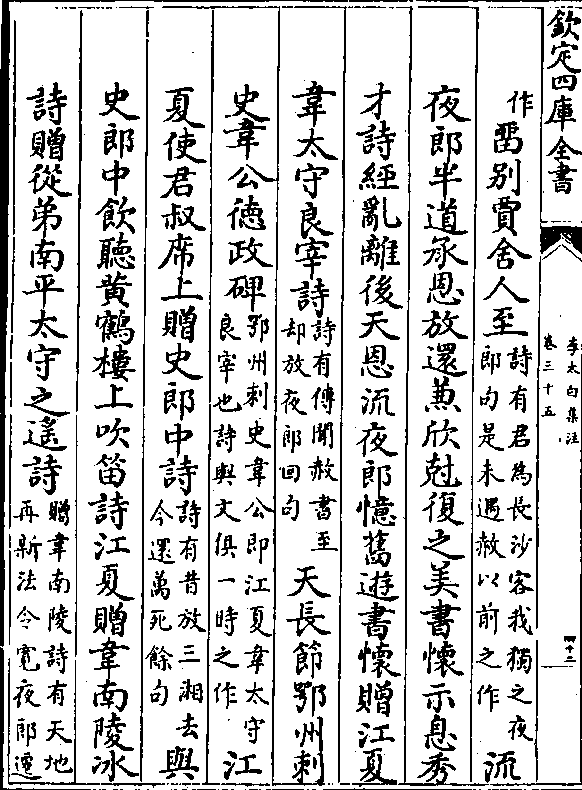 欽定四庫全書
李太白集注
卷三十五
四十二
作
留別賈舍人至
詩有君為長沙客我獨之夜
郎句是未遇赦以前之作
流
夜郎半道承恩放還兼欣尅復之美書懷示息秀
才詩經亂離後天恩流夜郎憶舊遊書懷贈江夏
韋太守良宰詩
詩有傳聞赦書至
却放夜郎回句
天長節鄂州刺
史韋公德政碑
鄂州刺史韋公即江夏韋太守
良宰也詩與文俱一時之作
江
夏使君叔席上贈史郎中詩
詩有昔放三湘去
今還萬死餘句
與
史郎中飲聽黃鶴樓上吹笛詩江夏贈韋南陵冰
詩贈從弟南平太守之遙詩
贈韋南陵詩有天地
再新法令寬夜郎遷